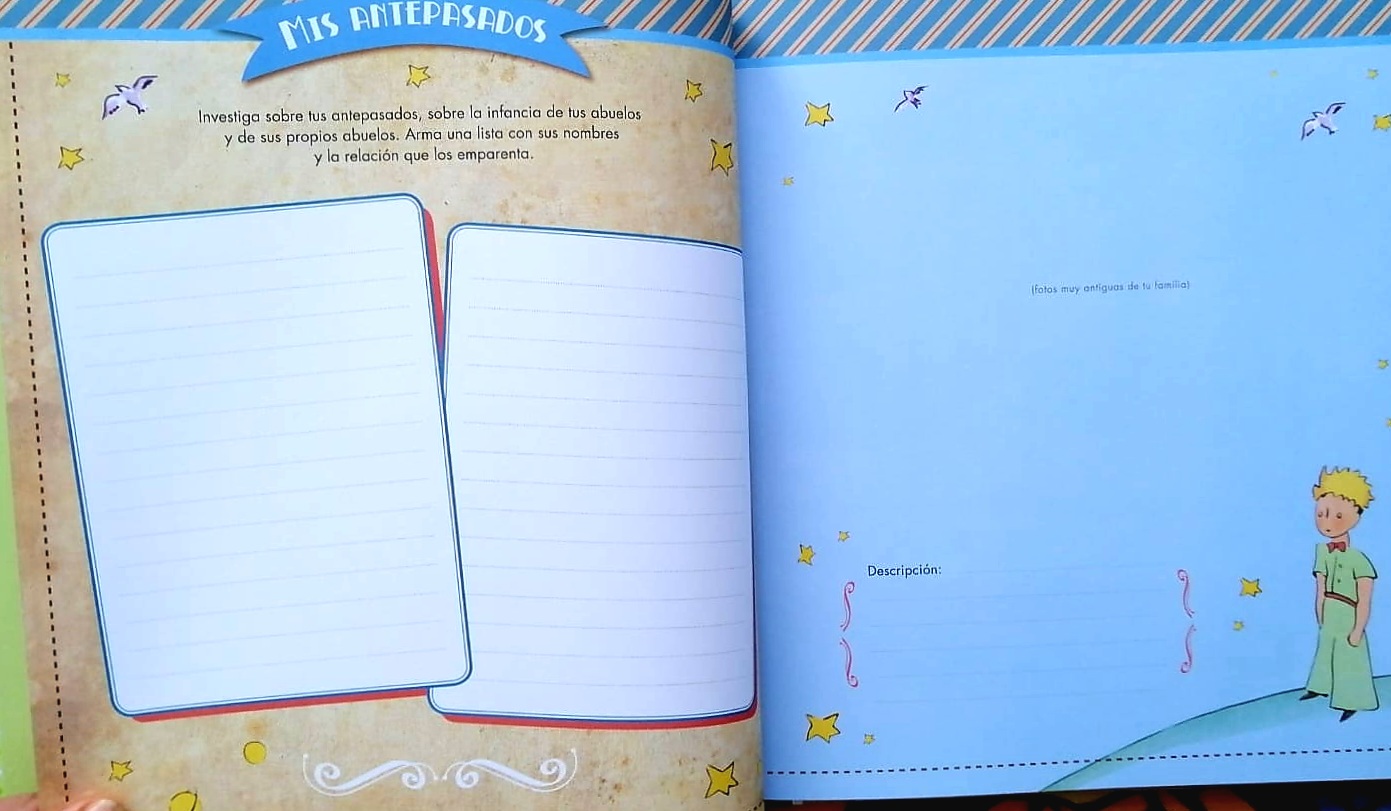 MIS ANTEPASADOS
Investiga sobre tus antepasados, sobre la infancia de tus abuelos
y de sus propios abuelos. Arma una lista con sus nombres
y la relación que los emparenta.
(fotos muy antiguas de tu familia)
Descripción: